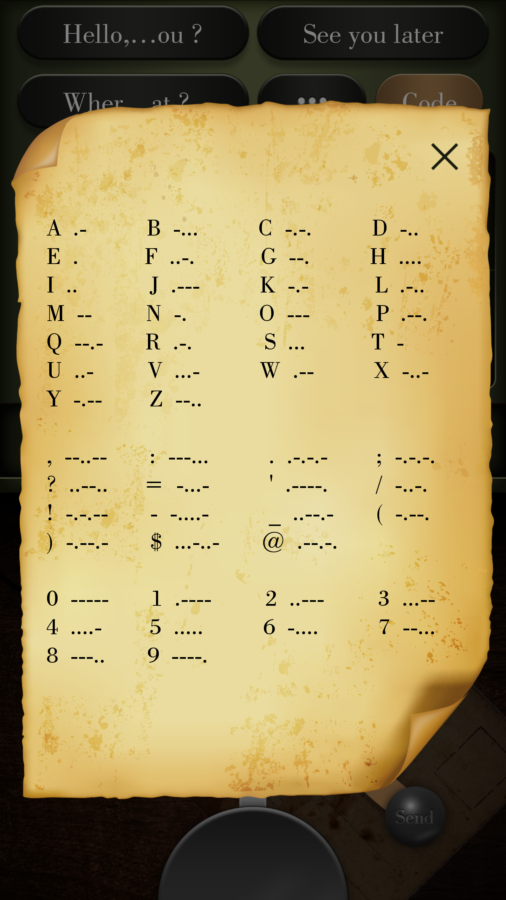 Hello,...ou ? See you later
Wher...at ? ... Code
A .- B -... C -.-. D -..
E . F ..-. G --. H ....
I .. J .--- K -.- L .-..
M -- N -. O --- P .--.
Q --.- R .-. S ... T -
U ..- V ...- W .-- X -..-
Y -.-- Z --..
, --..-- : ---... . .-.-.- ; -.-.-.
? ..--.. = -...- ' .----. / -..-.
! -.-.-- - -....- _ ..--.- ( -.--.
) -.--.- $ ...-..- @ .--.-.
0 ----- 1 .---- 2 ..--- 3 ...--
4 ....- 5 ..... 6 -.... 7 --...
8 ---.. 9 ----.
Send